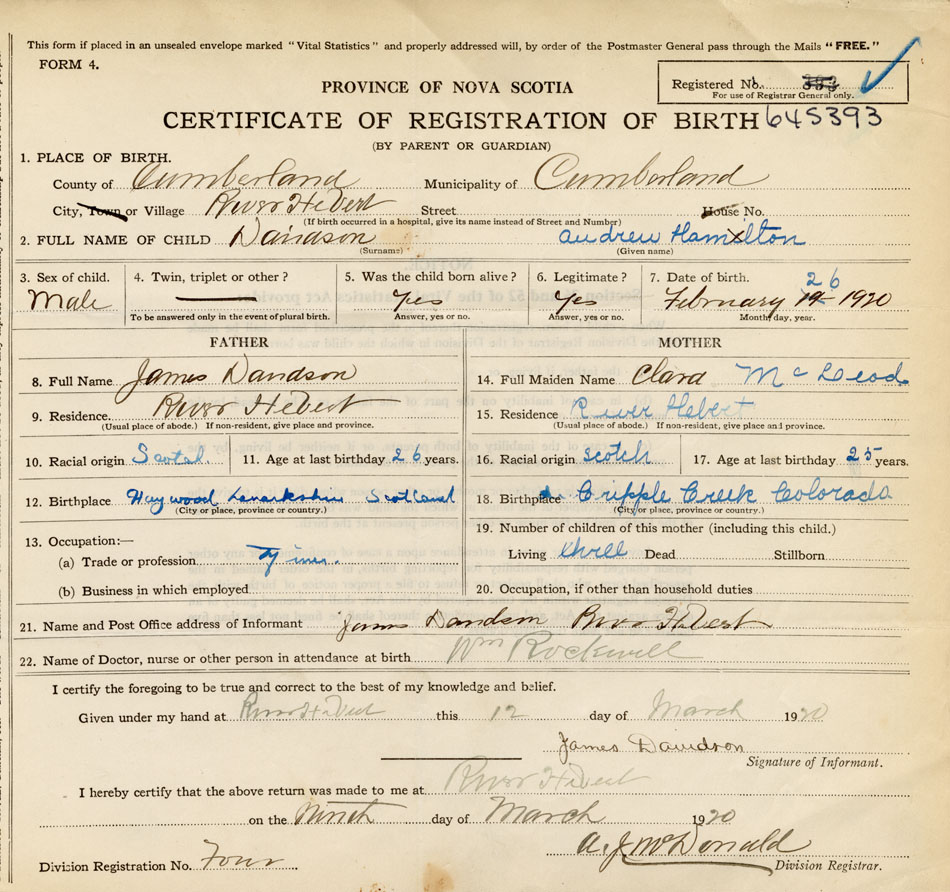 This form if placed in an unsealed envelope marked "Vital Statistics" and properly addressed will, by order of the Postmaster General pass through the Mails "FREE."
FORM 4.
Registered No.
For use of Registrar General only.
PROVINCE OF NOVA SCOTIA
CERTIFICATE OF REGISTRATION OF BIRTH 645393
(BY PARENT OR GUARDIAN)
1. PLACE OF BIRTH.
County of Cumberland Municipality of Cumberland
City, Town or Village River Hebert Street House No.
(If birth occurred in a hospital, give its name instead of Street and Number)
2. FULL NAME OF CHILD Davidson Andrew Hamilton
(Surname) (Given name)
3. Sex of child. 4. Twin, triplet or other? 5. Was the child born alive? 6. Legitimate? 7. Date of birth.
Male Yes Yes February 26 1920
To be answered only in the event of plural birth. Answer, yes or no. Answer, yes or no. Month, day, year.
FATHER MOTHER
8. Full Name James Davidson 14. Full Maiden Name Clara McLeod
9. Residence. River Hebert 15. Residence River Hebert
(Usual place of abode.) If non-resident, give place and province. (Usual place of abode.) If non-resident, give place and province.
10. Racial origin Scotch 11. Age at last birthday 26 years. 16. Racial origin Scotch 17. Age at last birthday 25 years.
12. Birthplace Lanarkshire Scotland 18. Birthplace Cripple Creek Colorado
(City or place, province or country.) (City or place, province or country.)
19. Number of children of this mother (including this child.)
13. Occupation:—
Living three Dead Stillborn
(a) Trade or profession
(b) Business in which employed 20. Occupation, if other than household duties
21. Name and Post Office address of Informant James Davidson River Hebert
22. Name of Doctor, nurse or other person in attendance at birth Wm Rockwell
I certify the foregoing to be true and correct to the best of my knowledge and belief.
Given under my hand at River Hebert this 12 day of March 1920
James Davidson
Signature of Informant.
I hereby certify that the above return was made to me at River Hebert
on the Ninth day of March 1920
A. J. McDonald
Division Registration No. Four Division Registrar.